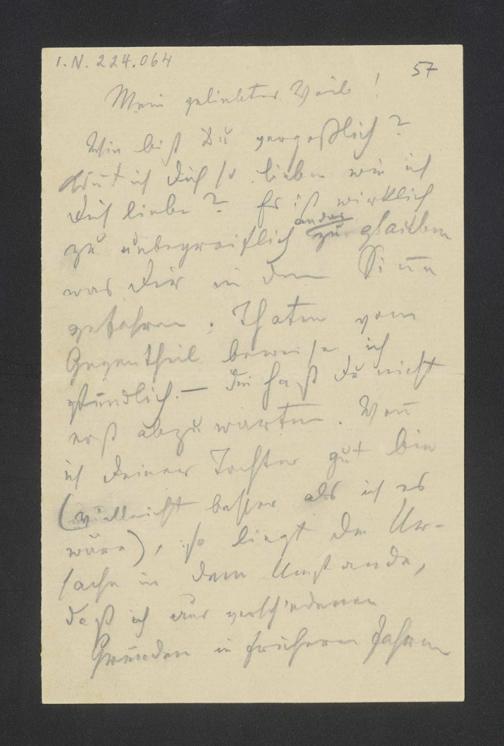 I.N. 224.064
57
Mein geliebtes Weib!
Wie bist Du vergeßlich?
ich Dich so lieben wie ich
Dich liebe? Es ist wirklich
zu unbegreiflich anders zu glauben
was Dir in den Sinn
gefahren. Thaten vom
Gegentheil beweise ich
stündlich. — Die hast Du nicht
erst abzuwarten. Wenn
ich Deiner Tochter gut bin
(vielleicht besser als ich es
wäre), so liegt die Ur-
sache in dem Umstande,
daß ich aus verschiedenen
Gründen in früheren Jahren